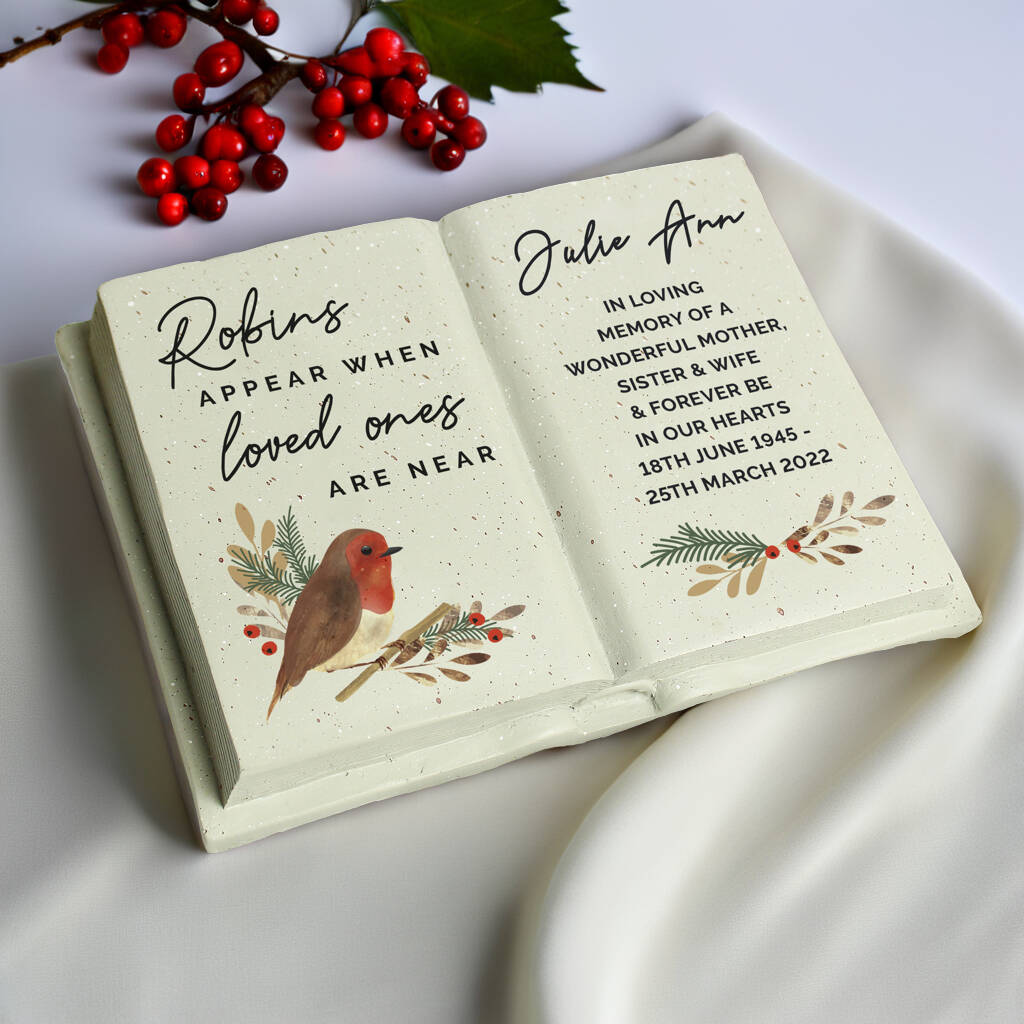 Robins
APPEAR WHEN
loved ones
ARE NEAR
Julie Ann
IN LOVING
MEMORY OF A
WONDERFUL MOTHER,
SISTER & WIFE
& FOREVER BE
IN OUR HEARTS
18TH JUNE 1945 -
25TH MARCH 2022